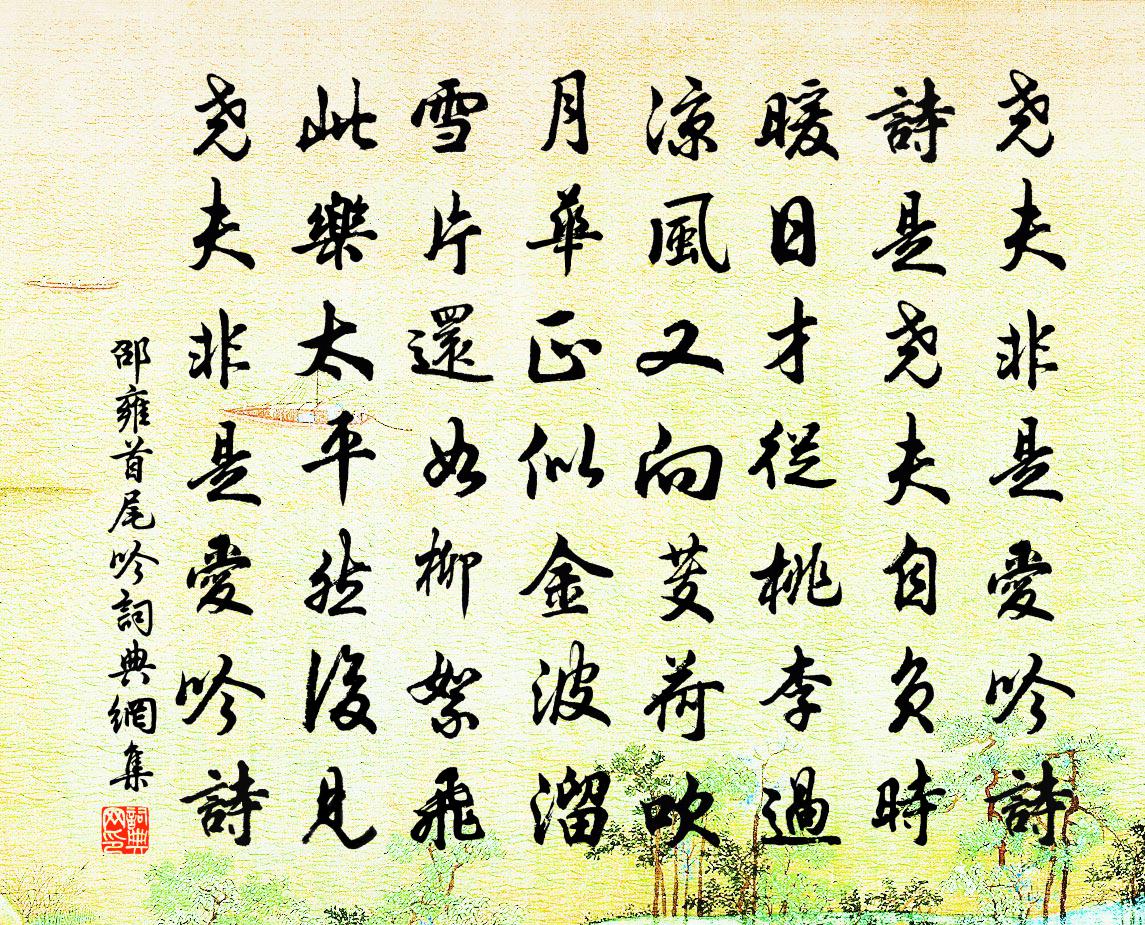 尧夫非是愛吟詩
詩是尧夫自負時
暖日才從桃李過
涼風又向芰荷吹
月華正似金波溜
雪片還如柳絮飛
此樂太平然後見
尧夫非是愛吟詩
邵雍首尾吟詞典網集
詞典
网印